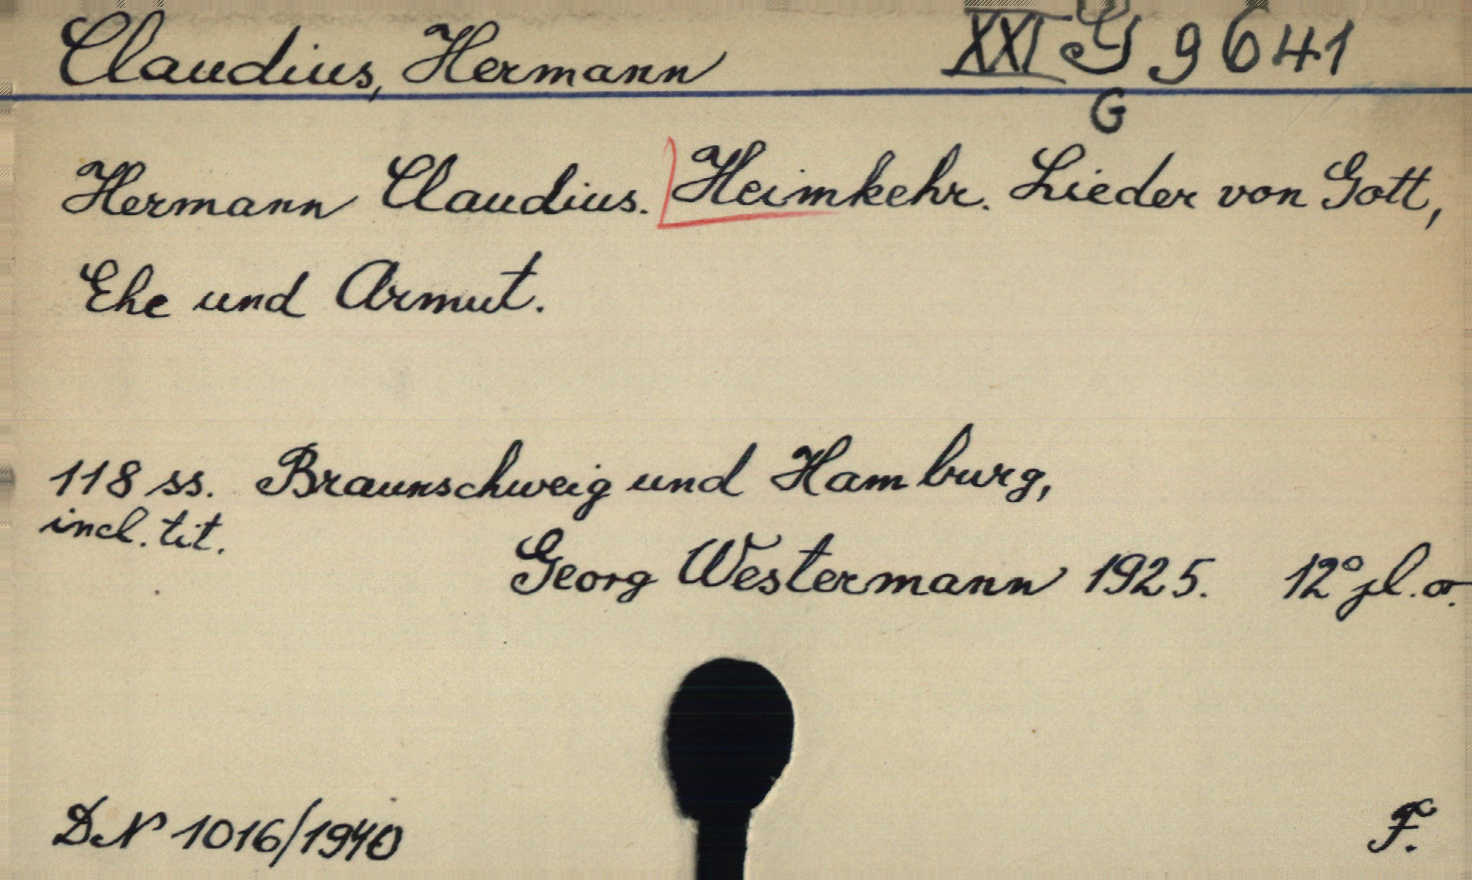 Claudius, Hermann XXI G 9641
G
Hermann Claudius. Heimkehr. Lieder von Gott,
Ehe und Armut.
118 ss. Braunschweig und Hamburg,
incl. tit.
Georg Westermann 1925. 12° pl. o.
DN 1016/1940 F.